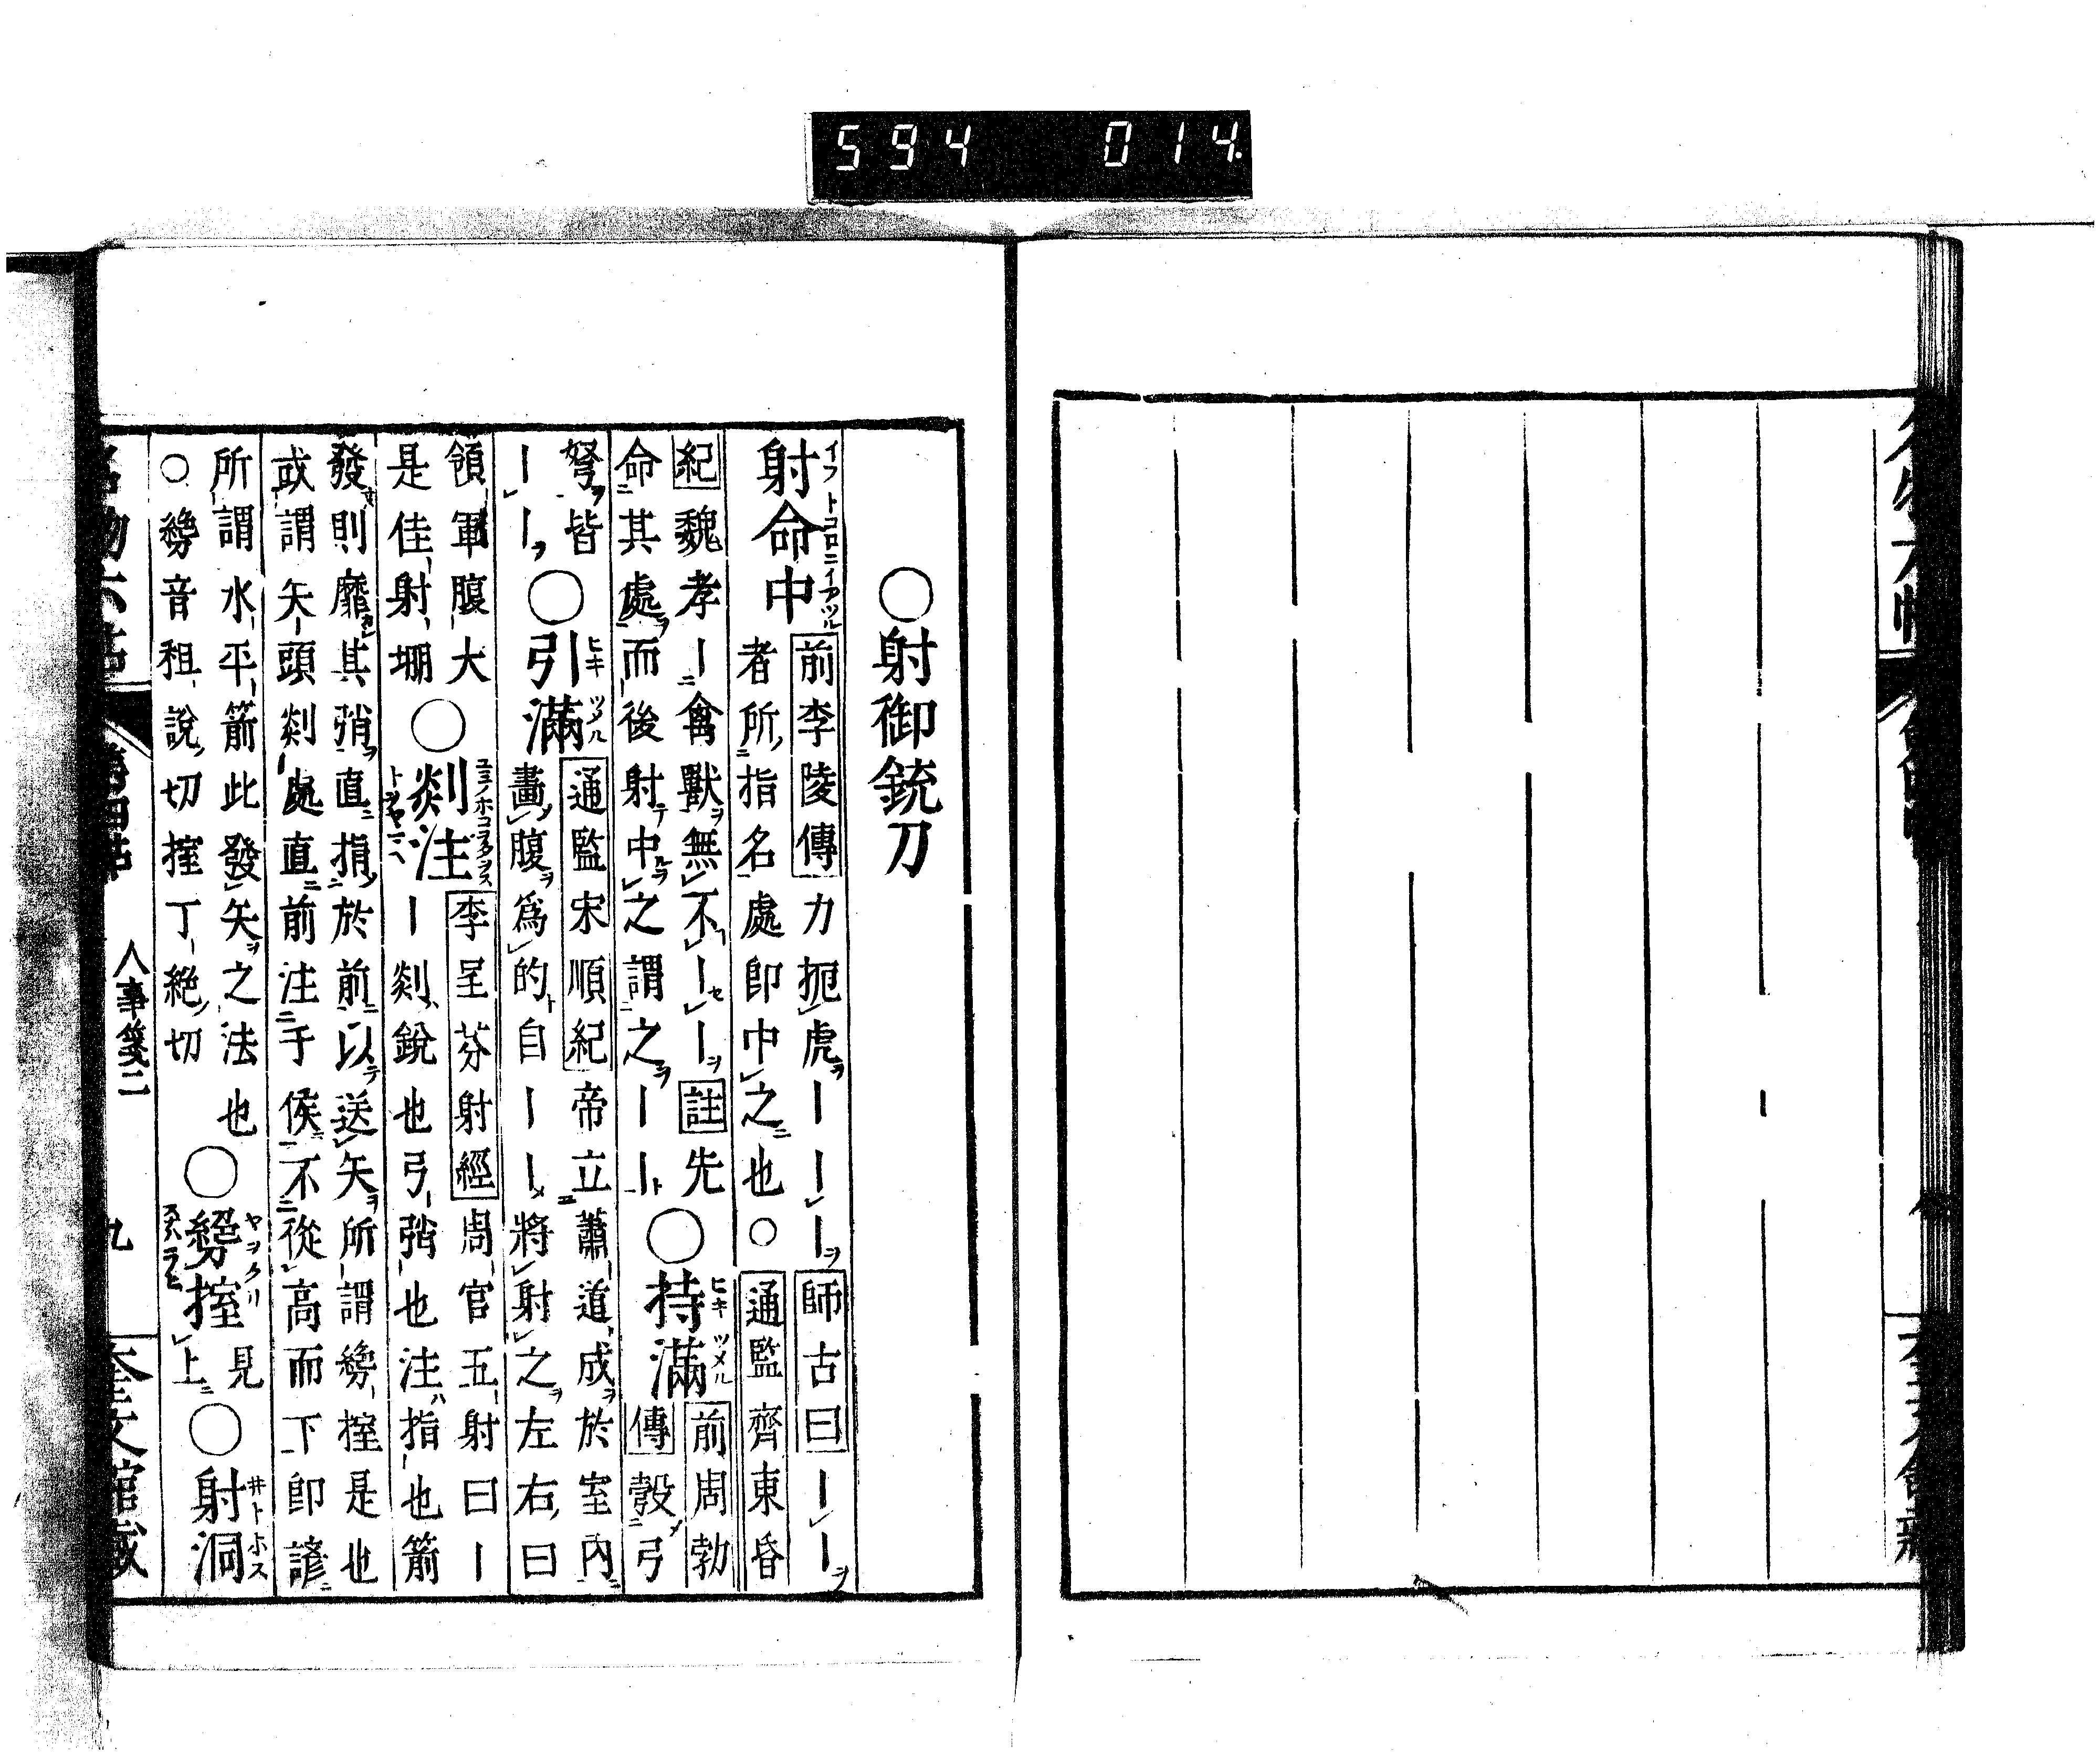 594 014
○射御銃刀
射命中
イフトコロニイアツル
前李陵傳力扼虎｜｜｜師古曰｜｜
者所指名處即中之也○通監齊東昏
紀魏孝｜禽獸無不｜｜註先
命其處而後射中之謂之｜｜
○持滿
ヒキツメル
前周勃
傳彀弓
弩皆
｜｜
○引滿
ヒキツメル
通監宋順紀帝立蕭道成於室內
畫腹爲的自｜｜將射之左右曰
領軍腹大
是佳射堋
○剡注
李呈芬射經周官五射曰｜
｜剡銳也弓弰也注指也箭
發則靡其弰直指於前以送矢所謂䋽㨖是也
或謂矢頭剡處直前注于侯不從高而下即諺
所謂水平箭此發矢之法也
○䋽音租說切㨖丁絕切
○䋽㨖
見
上
○射洞
井トホス
人事箋二
九
奎文館藏